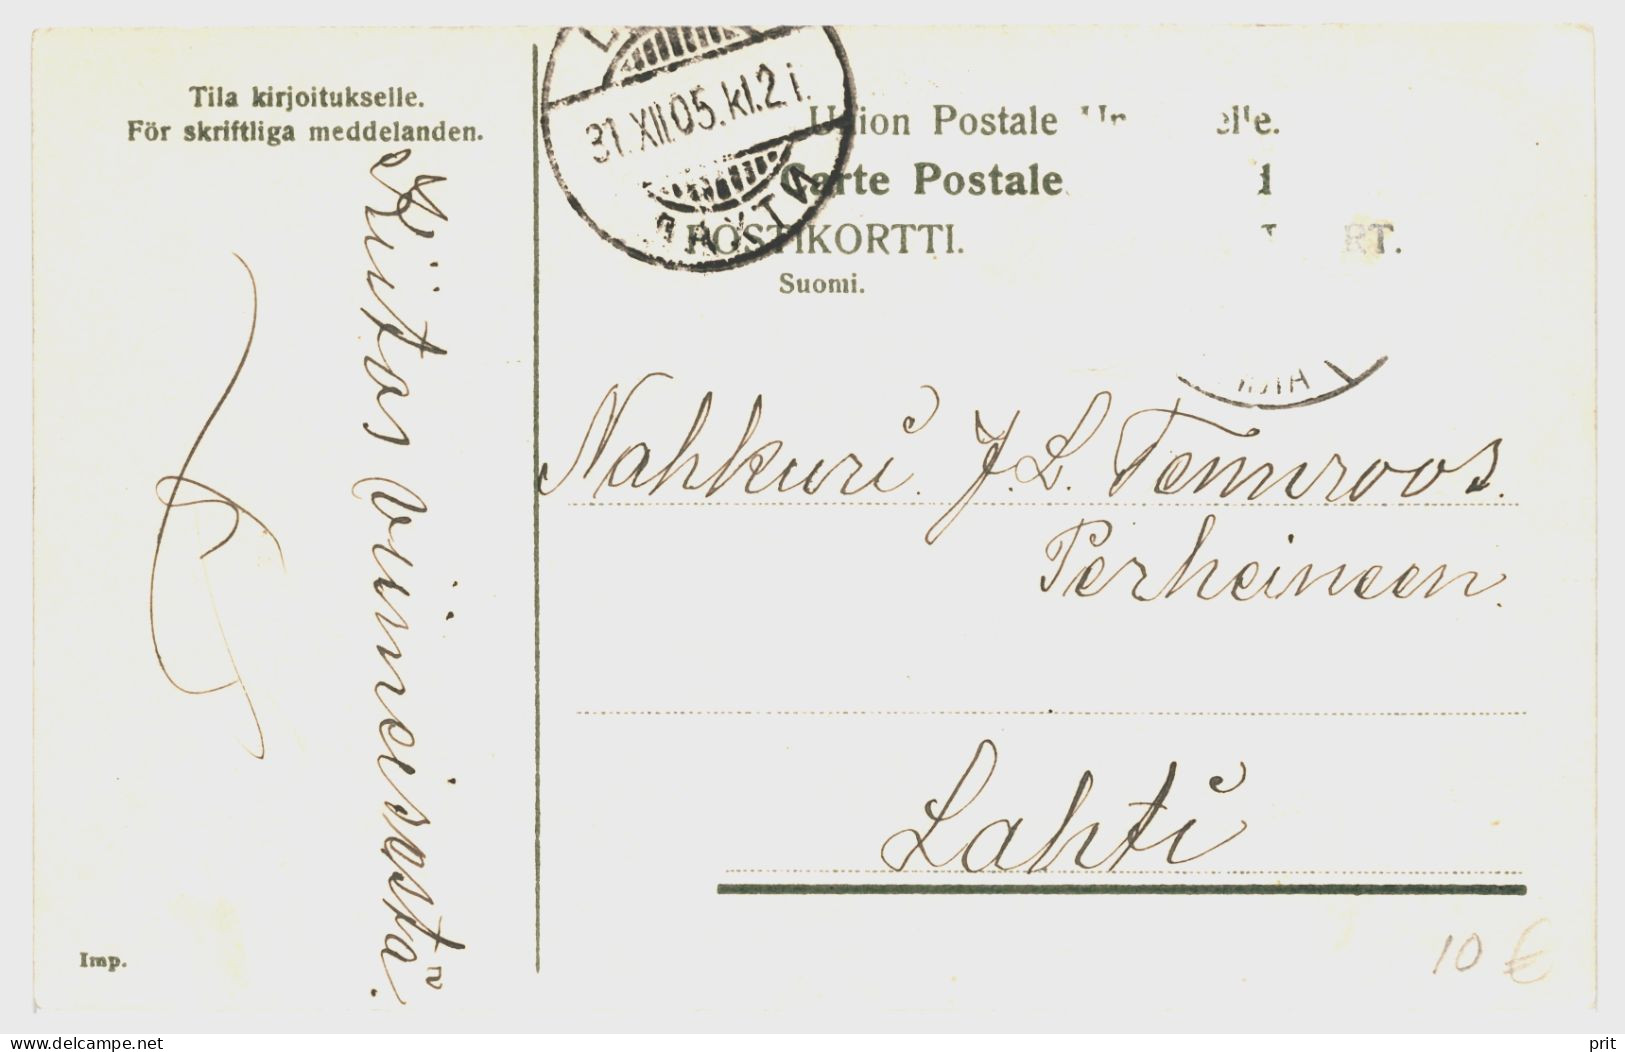 Tila kirjoitukselle.
För skriftliga meddelanden.
Kiitos viimeisestä.
Imp.
31.XII.05.kl.2 i.
Union Postale Un elle.
Carte Postale
POSTIKORTTI. RT.
Suomi.
Nahkuri J. L. Temroos.
Perheineen.
Lahti
10 €
www.delcampe.net
prit